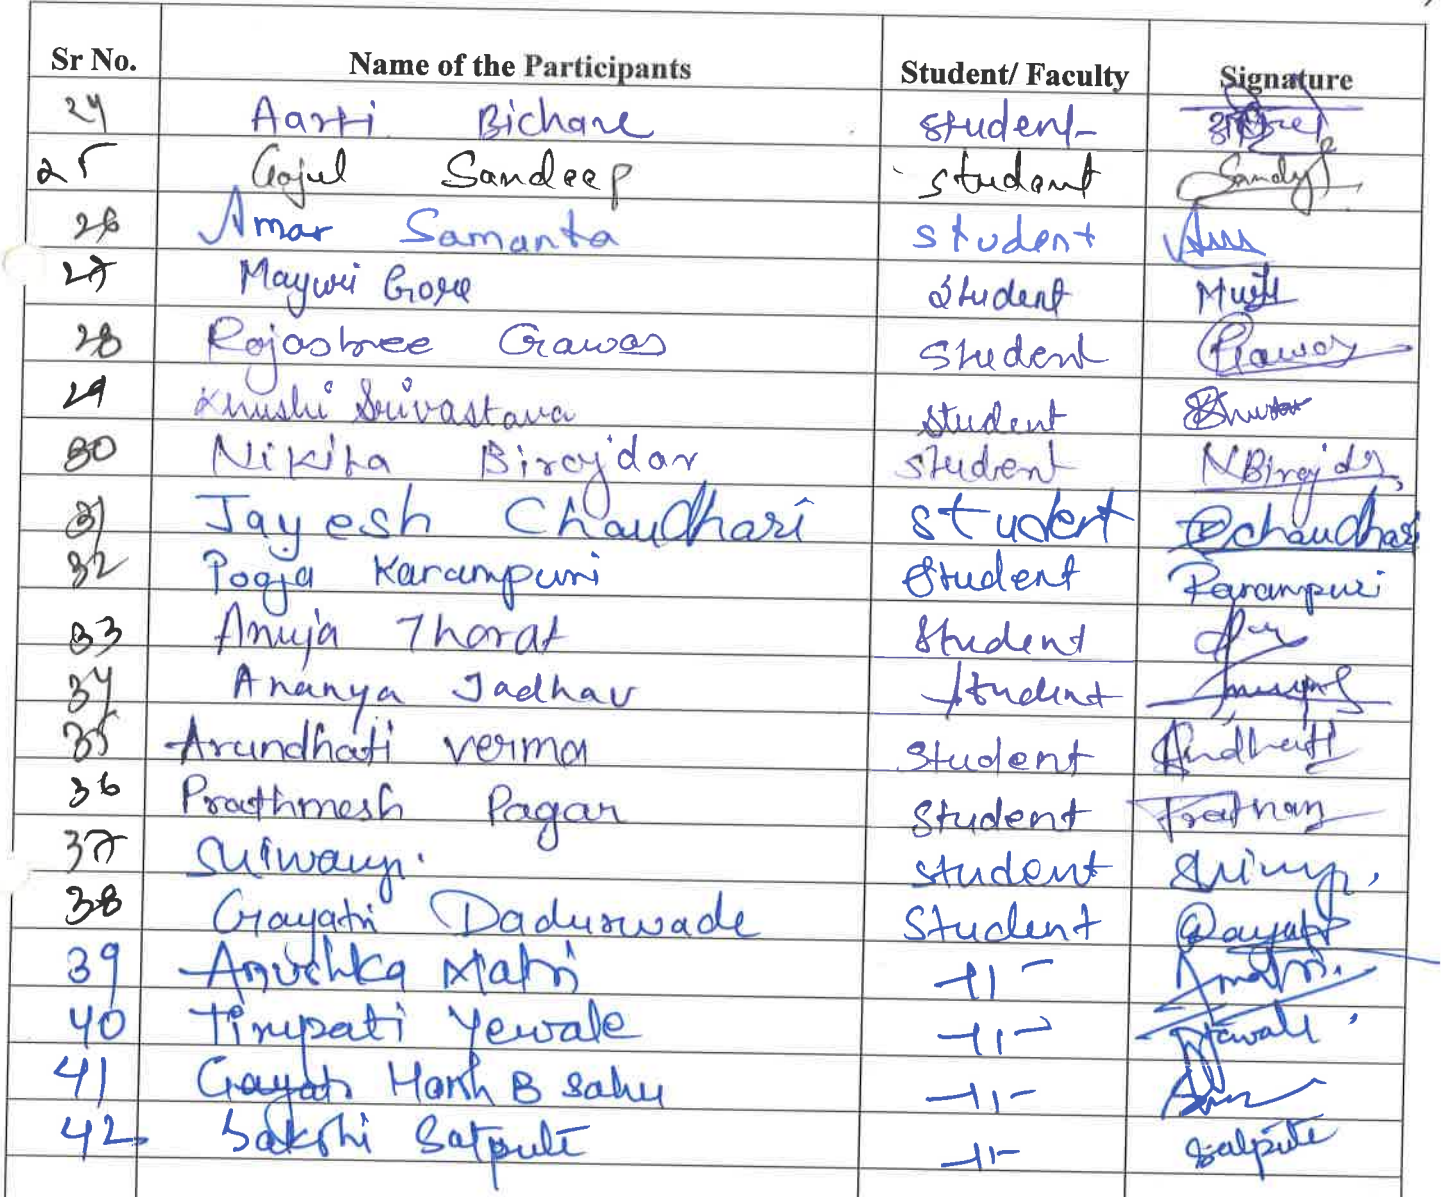 Sr No. Name of the Participants Student/ Faculty Signature
24 Aarti Bichare student
25 Gojul Sandeep student Sandy
26 Amar Samanta student
27 Mayuri Gore Student
28 Rajashree Gawas student Gawas
29 Khushi Srivastava student
30 Nikita Birajdar student NBirajdar
31 Jayesh Chaudhari student Chaudhari
32 Pooja Karampuri Student Karampuri
33 Anuja Thorat Student
34 Ananya Jadhav student
35 Arundhati verma student
36 Prathmesh Pagar student
37 student
38 Gayatri Dadurwade Student Gayatri
39 Anushka Matri -11-
40 Tirupati Yewale -11-
41 Harsh B Sahu -11-
42 Sakshi Satpute -11- Satpute